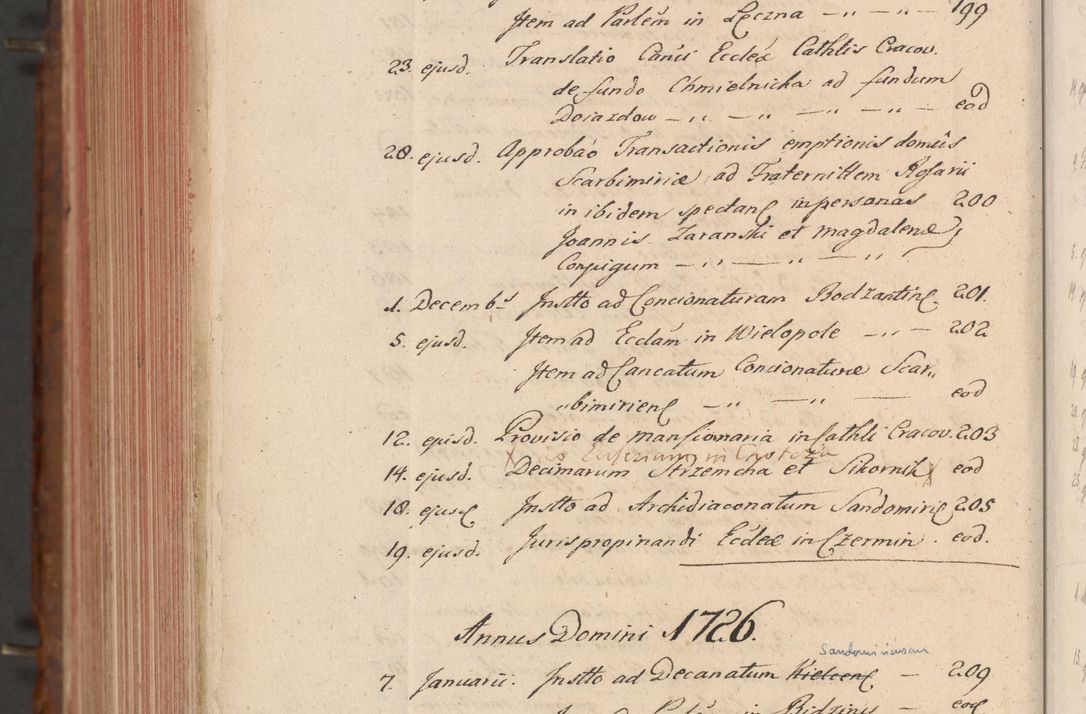 Item ad Parlem in Łeczna — " — " — 199
23. ejusd. Translatio Canci Eccleæ Cathlis Cracov.
de fundo Chmielnicka ad fundum
Dojazdow — " — " — " — " — eod
28. ejusd. Approbão Transactionis emptionis domûs
Scarbimiriæ ad Fraternittem Rosarii
inibidem spectanę inpersonas 200
Joannis Zaranski et Magdalenæ
Conjugum — " — " — " — "
1. Decembs Instto ad Concionaturam Bodzantinę. 201.
5. ejusd. Item ad Ecclam in Wielopole — " — 202
Item ad Caucatum Concionaturæ Scar"
"bimirienę — " — " — eod
12. ejusd. Provisio de mansionaria in Cathli Cracov. 203
14. ejusd. Decimarum Strzemcha et Sikornik eod
18. ejusę Instto ad Archidiaconatum Sandomirię 205
19. ejusd. Juris propinandi Eccleæ in Czermin . eod.
Annus Domini 1726.
Sandomiriensem
7. Januarii. Instto ad Decanatum Kielcenę — 209
in Bidziny — eod